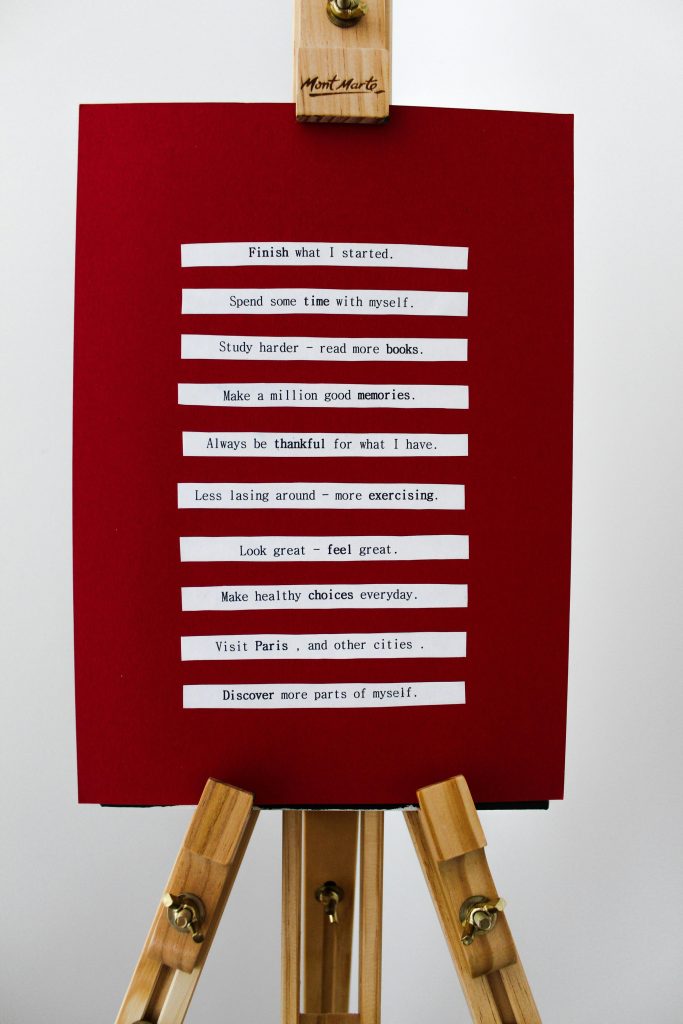 Mont Marte
Finish what I started.
Spend some time with myself.
Study harder - read more books.
Make a million good memories.
Always be thankful for what I have.
Less lasing around - more exercising.
Look great - feel great.
Make healthy choices everyday.
Visit Paris , and other cities .
Discover more parts of myself.